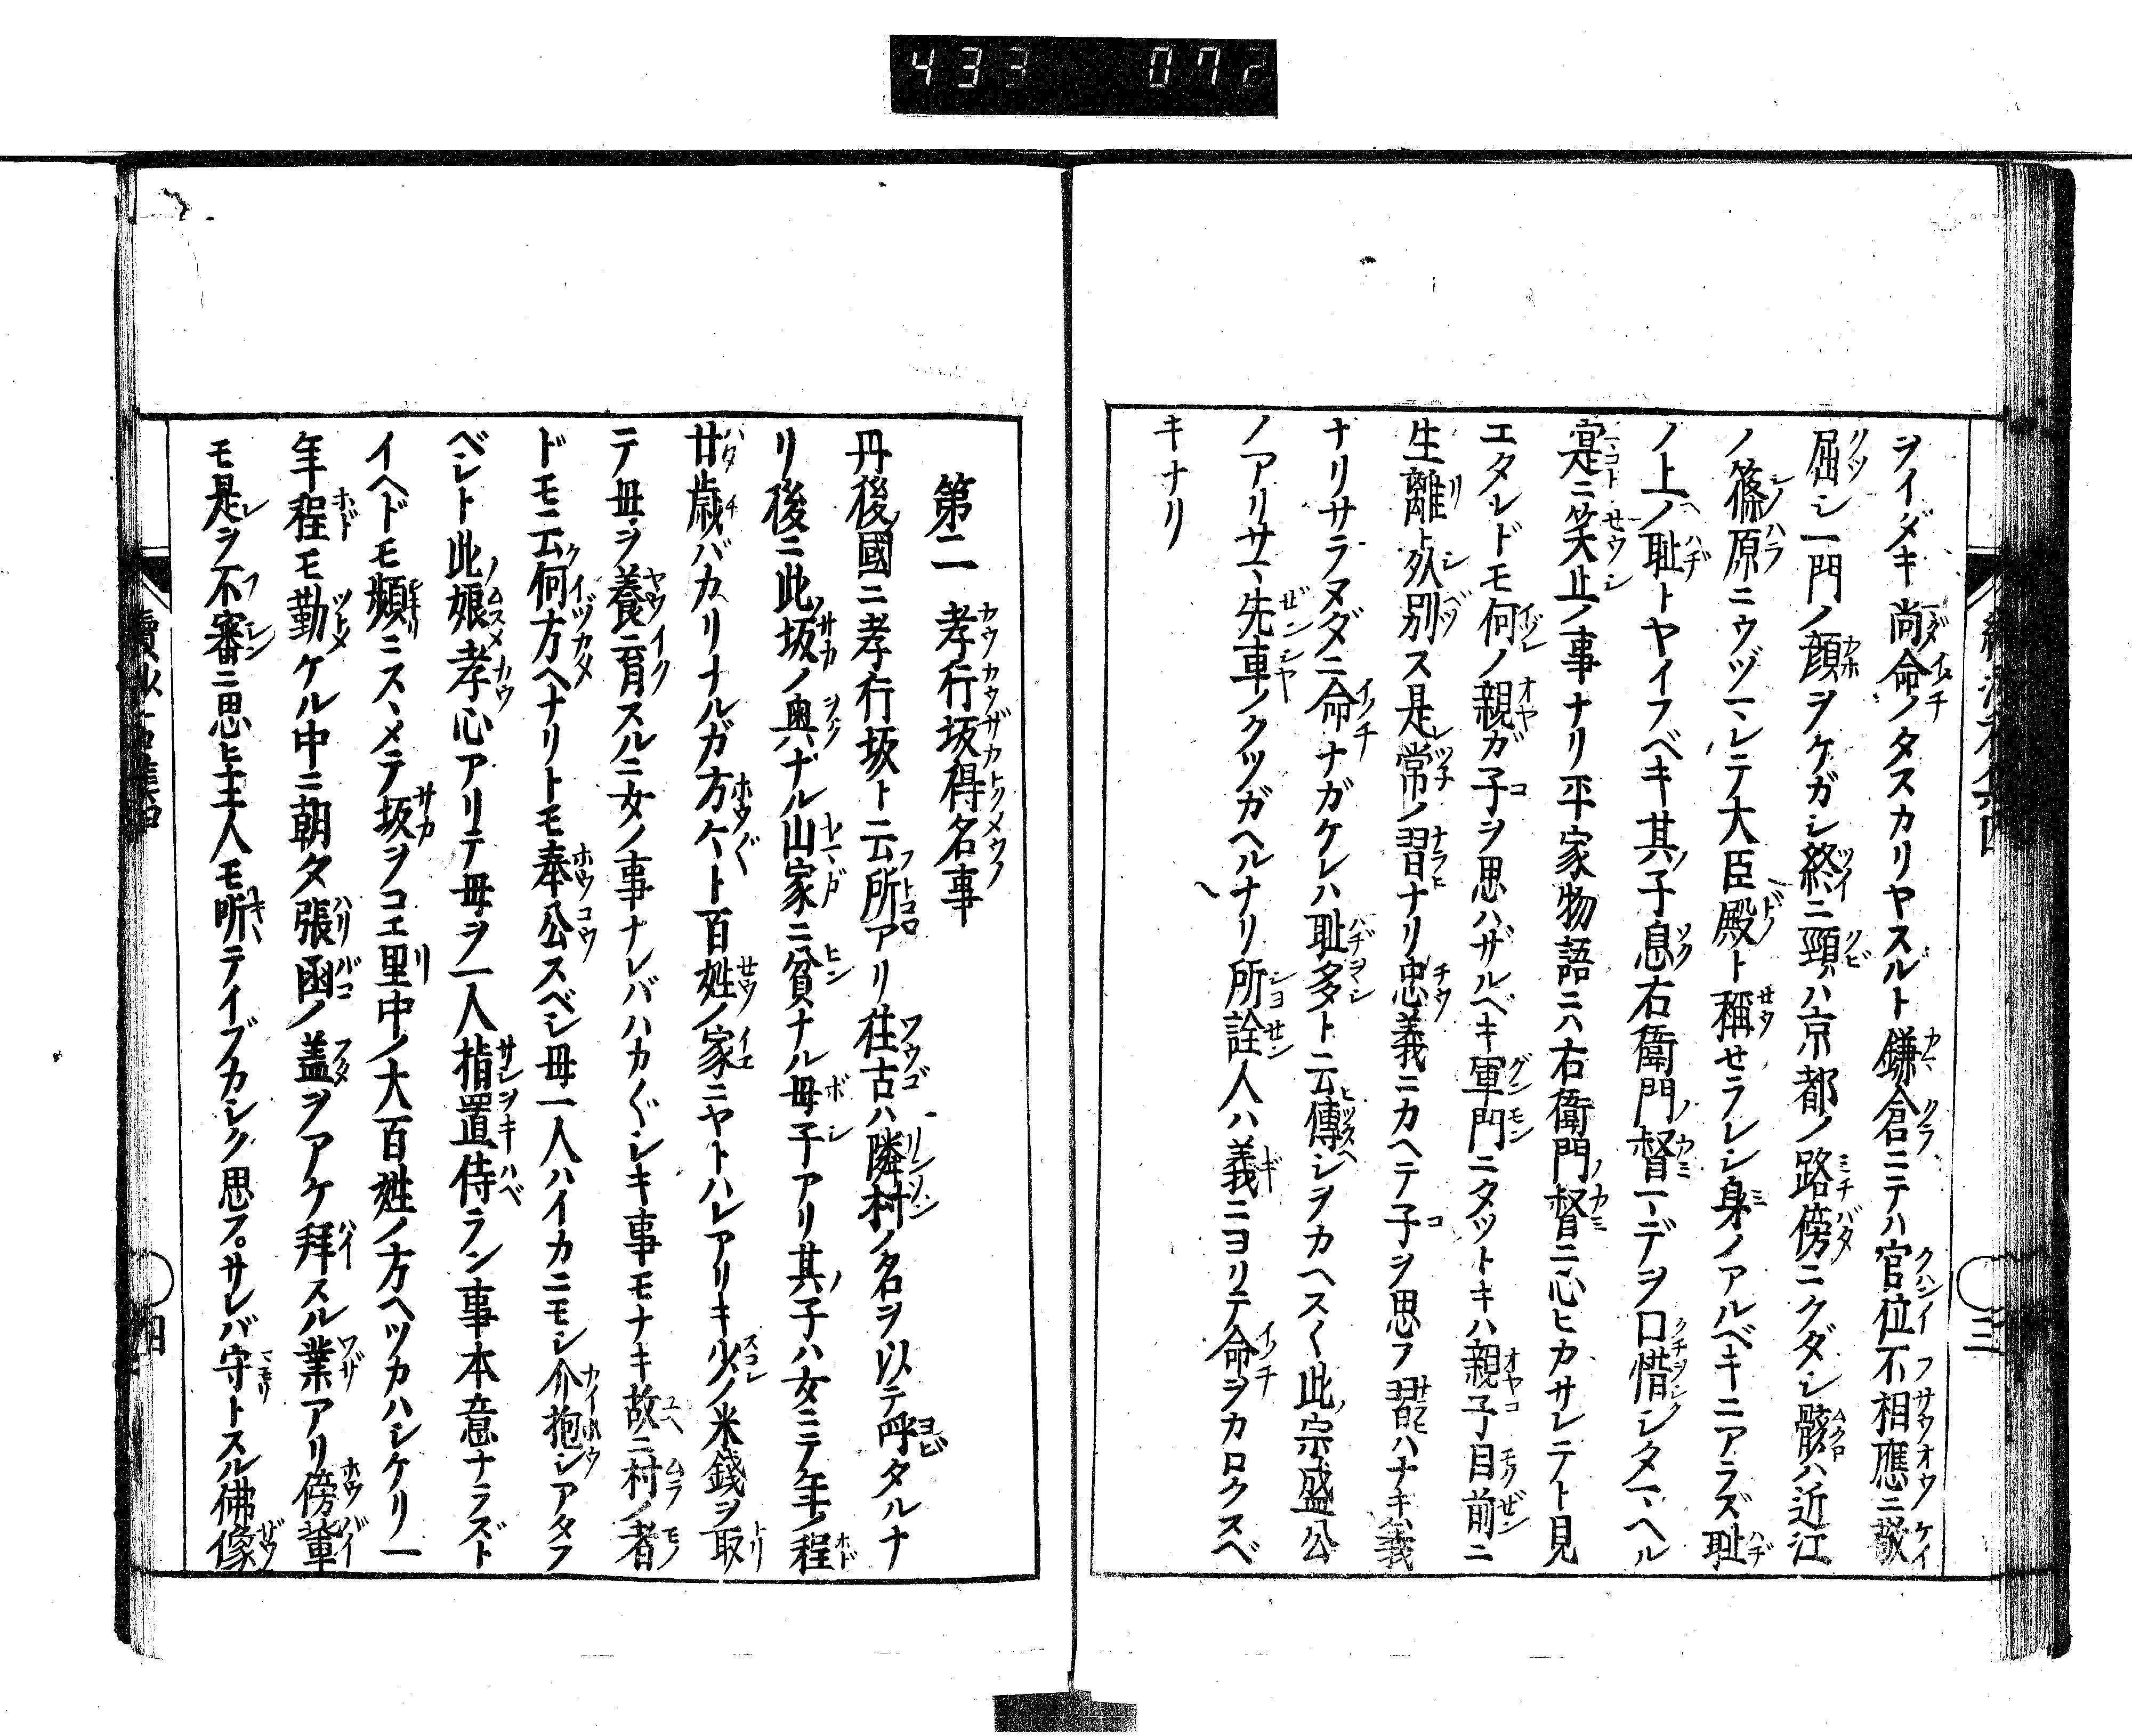 433 072
ヲイダキ尚命ノタスカリヤスルト鎌倉ニテハ官位不相應ニ敬
屈シ一門ノ顔ヲケガシ終ニ頸ハ京都ノ路傍ニクダシ骸ハ近江
ノ篠原ニウヅマレテ大臣殿ト稱セラレシ身ノアルベキニアラズ耻
ノ上ノ耻トヤイフベキ其子息右衛門督マデヲ口惜シタマヘル
寔ニ笑止ノ事ナリ平家物語ニハ右衛門督ニ心ヒカサレテト見
エタレドモ何ノ親ガ子ヲ思ハザルベキ軍門ニタツトキハ親子目前ニ
生離ト死別ス是常ノ習ナリ忠義ニカヘテ子ヲ思フ習ハナキ義
ナリサラヌダニ命ナガケレハ耻多ト云傳シヲカヘス〱此宗盛公
ノアリサマ先車ノクツガヘルナリ所詮人ハ義ニヨリテ命ヲカロクスベ
キナリ
三
第二 孝行坂得名事
丹後國ニ孝行坂ト云所アリ往古ハ隣村ノ名ヲ以テ呼タルナ
リ後ニ此坂ノ奥ナル山家ニ貧ナル母子アリ其子ハ女ニテ年ノ程
廿歳バカリナルガ方々ト百姓ノ家ニヤトハレアリキ少ノ米錢ヲ取
テ母ヲ養育スルニ女ノ事ナレバハカ〲シキ事モナキ故ニ村ノ者
ドモ云何方ヘナリトモ奉公スベシ母一人ハイカニモシ介抱シアタフ
ベシト此娘孝心アリテ母ヲ一人指置侍ラン事本意ナラズト
イヘドモ頻ニスヽメテ坂ヲコエ里中ノ大百姓ノ方ヘツカハシケリ一
年程モ勤ケル中ニ朝夕張函ノ盖ヲアケ拜スル業アリ傍輩
モ是ヲ不審ニ思ヒ主人モ听テイブカシク思フ。サレバ守トスル佛像
四